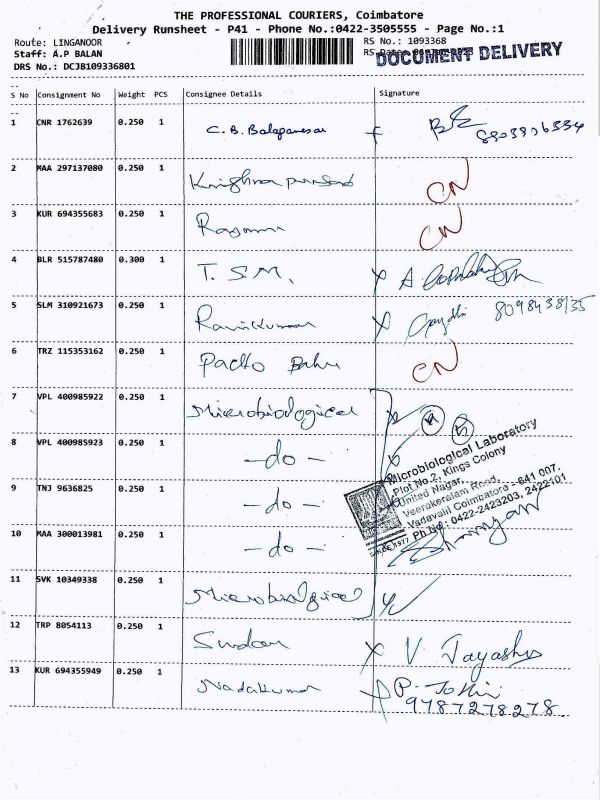 THE PROFESSIONAL COURIERS, Coimbatore
Delivery Runsheet - P41 - Phone No.:0422-3505555 - Page No.:1
Route: LINGANOOR
RS No.: 1093368
Staff: A.P BALAN
DOCUMENT DELIVERY
DRS No.: DCJB109336801
S No Consignment No Weight PCS Consignee Details Signature
1 CNR 1762639 0.250 1 C. B. Balaganesar
2 MAA 297137080 0.250 1 Krishna prasad CN
3 KUR 694355683 0.250 1 CN
4 BLR 515787480 0.300 1 T. S. M. A.
5 SLM 310921673 0.250 1 Ravikumar 8098438135
6 TRZ 115353162 0.250 1 CN
7 VPL 400985922 0.250 1 Microbiological
8 VPL 400985923 0.250 1 -do-
9 TNJ 9636825 0.250 1 -do-
10 MAA 300013981 0.250 1 -do-
Microbiological Laboratory
Plot No.2, Kings Colony
United Nagar,
Veerakeralam Road,
Vadavalli Coimbatore - 641 007.
Ph.No: 0422-2423203, 2422101
11 SVK 10349338 0.250 1 Microbiological
12 TRP 8054113 0.250 1 V. Jayashre
13 KUR 694355949 0.250 1 Nadakumar P.
9787278278.